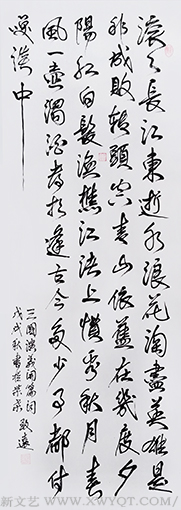 滚々長江東逝水浪花淘盡英雄是
非成敗轉頭空青山依舊在幾度夕
陽紅白髮漁樵江渚上慣看秋月春
風一壺濁酒喜相逢古今多少事都付
笑談中
三國演義開篇词
戊戌秋書於 致遠
新文艺 - WWW.XWYQT.COM